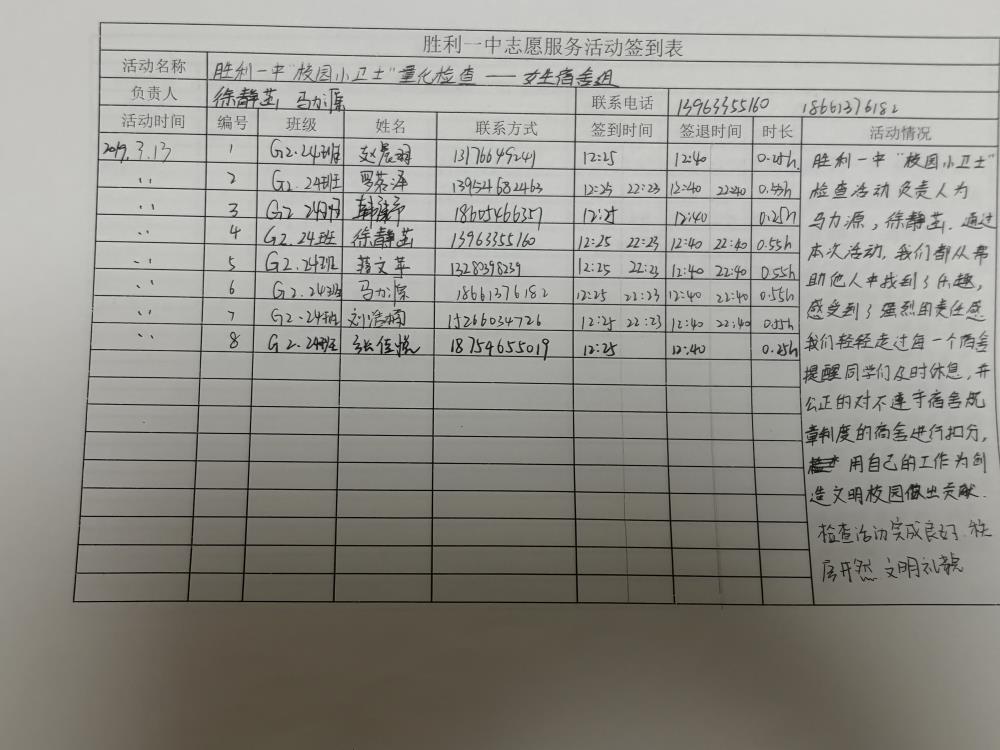 胜利一中志愿服务活动签到表
活动名称 胜利一中"校园小卫士"量化检查——女生宿舍组
负责人 徐静茁 马力源 联系电话 13963355160 18661376182
活动时间 编号 班级 姓名 联系方式 签到时间 签退时间 时长 活动情况
2019.3.13 1 G2.24班 赵晨羽 13176649241 12:25 12:40 0.25h
〃 2 G2.24班 罗茗泽 13954682463 12:25 22:23 12:40 22:40 0.55h
〃 3 G2.24班 18605466357 12:25 12:40 0.25h
〃 4 G2.24班 徐静茁 13963355160 12:25 22:23 12:40 22:40 0.55h
〃 5 G2.24班 文苹 1328398239 12:25 22:23 12:40 22:40 0.55h
〃 6 G2.24班 马力源 18661376182 12:25 22:23 12:40 22:40 0.55h
〃 7 G2.24班 刘浩楠 15266034726 12:25 22:23 12:40 22:40 0.55h
〃 8 G2.24班 张佳悦 18754655019 12:25 12:40 0.25h
胜利一中"校园小卫士"
检查活动负责人为
马力源,徐静茁,通过
本次活动,我们都从帮
助他人中找到了乐趣,
感受到了强烈的责任感
我们轻轻走过每一个宿舍
提醒同学们及时休息,并
公正的对不遵守宿舍规
章制度的宿舍进行扣分,
用自己的工作为创
造文明校园做出贡献.
检查活动完成良好.秩
序井然 文明礼貌